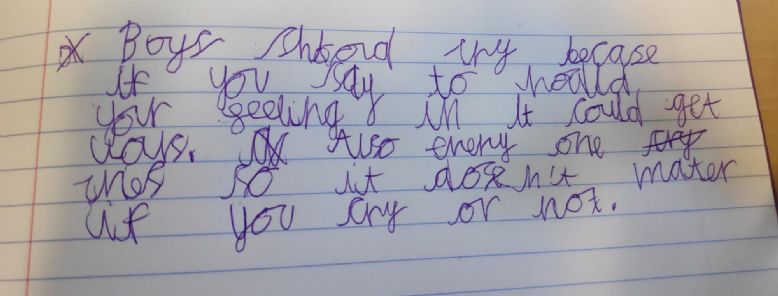 Boys shhord cry becase
if you say to hoald
your feeling in it could get
wors. Also eneny one
cries so it dose n't mater
if you cry or not.